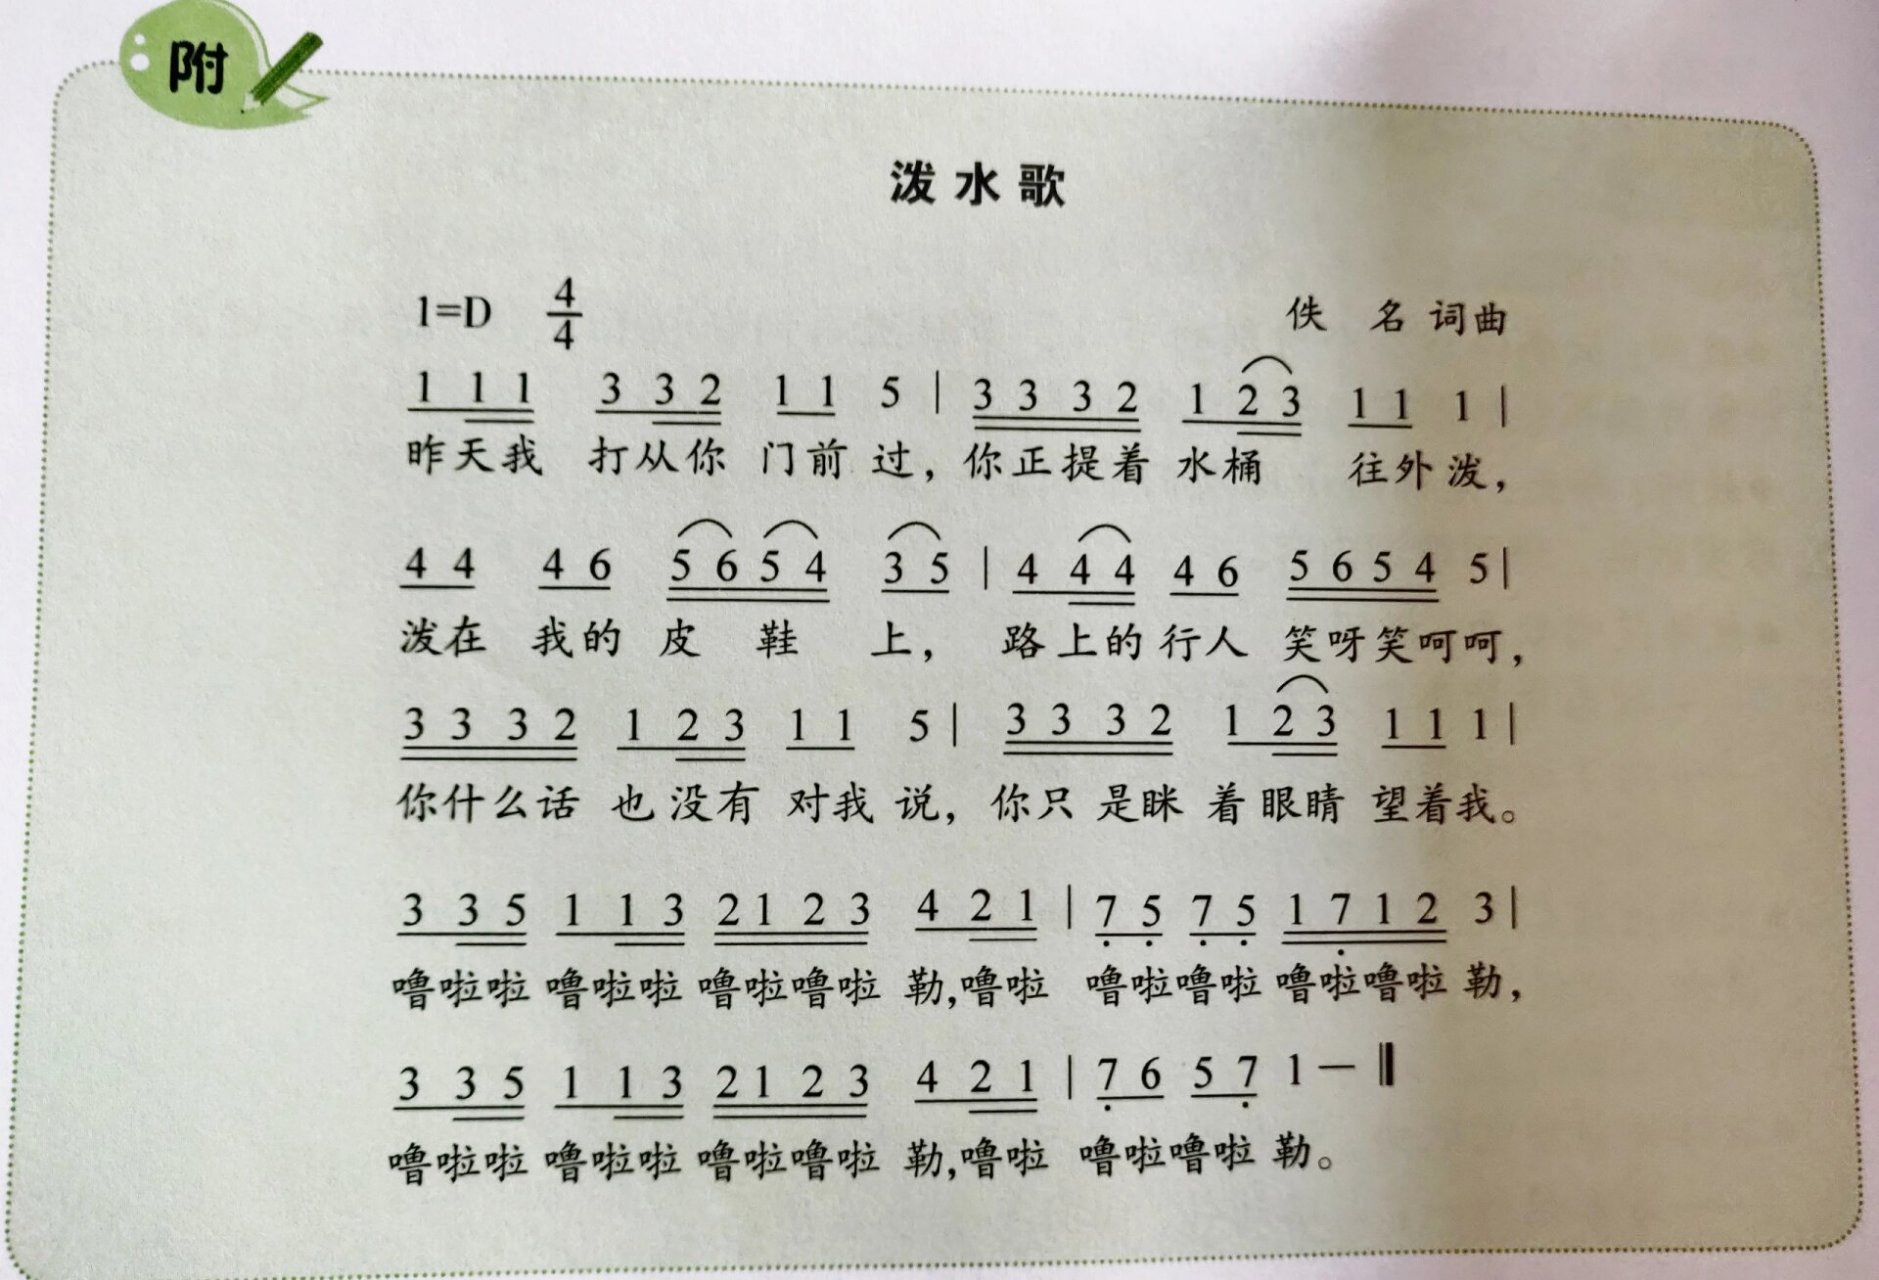 附
泼水歌
1=D 4/4 佚 名 词曲
1 1 1 3 3 2 1 1 5 | 3 3 3 2 1 2 3 1 1 1 |
昨天我 打从你 门前 过，你正提着 水桶 往外泼，
4 4 4 6 5 6 5 4 3 5 | 4 4 4 4 6 5 6 5 4 5 |
泼在 我的 皮 鞋 上， 路上的行人 笑呀笑呵呵，
3 3 3 2 1 2 3 1 1 5 | 3 3 3 2 1 2 3 1 1 1 |
你什么话 也没有 对我 说，你只 是眯 着眼睛 望着我。
3 3 5 1 1 3 2 1 2 3 4 2 1 | 7̣ 5̣ 7̣ 5̣ 1 7̣ 1 2 3 |
噜啦啦 噜啦啦 噜啦噜啦 勒,噜啦 噜啦噜啦 噜啦噜啦 勒，
3 3 5 1 1 3 2 1 2 3 4 2 1 | 7̣ 6 5 7̣ 1 — ‖
噜啦啦 噜啦啦 噜啦噜啦 勒,噜啦 噜啦噜啦 勒。